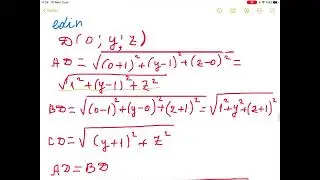 edin
D(0; y; z)
AD = √((0+1)² + (y-1)² + (z-0)²) =
√(1² + (y-1)² + z²)
BD = √((0-1)² + (y-0)² + (z+1)²) = √(1² + y² + (z+1)²)
CD = √((y+1)² + z²)
AD = BD